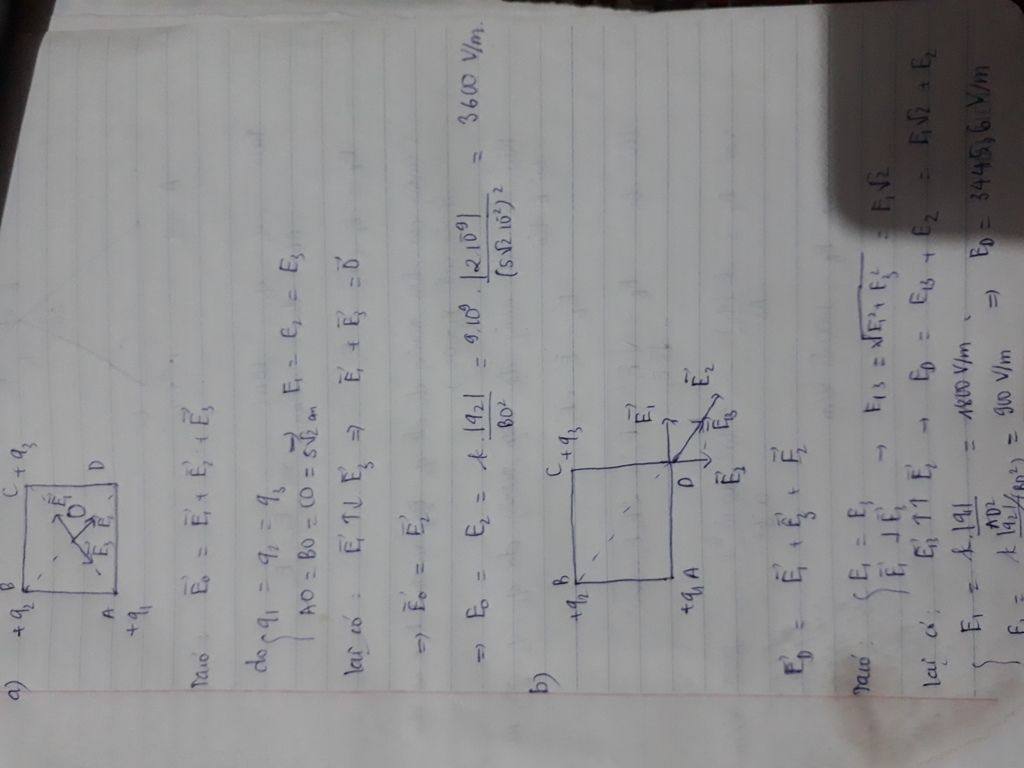 a)
+q₂ B C +q₃
O E₁⃗ E₃⃗ E₂⃗
A D
+q₁
Ta có: E₀⃗ = E₁⃗ + E₂⃗ + E₃⃗
do { q₁ = q₂ = q₃
AO = BO = CO = 5√2 m → E₁ = E₂ = E₃
lại có: E₁⃗ ↑↓ E₃⃗ ⇒ E₁⃗ + E₃⃗ = 0⃗
⇒ E₀⃗ = E₂⃗
⇒ E₀ = E₂ = k.|q₂|/BO² = 9.10⁹.|2.10⁻⁹|/(5√2.10⁻²)² = 3600 V/m.
b)
+q₂ B C +q₃
+q₁ A D E₁⃗
E₃⃗ E₁₃⃗ E₂⃗
E_D⃗ = E₁⃗ + E₃⃗ + E₂⃗
Ta có: { E₁ = E₃
E₁⃗ ⊥ E₃⃗ → E₁₃ = √(E₁² + E₃²) = E₁√2
lại có: E₁₃⃗ ↑↑ E₂⃗ → E_D = E₁₃ + E₂ = E₁√2 + E₂
{ E₁ = k.|q₁|/AD² = 1800 V/m
E₂ = k |q₂|/(BD²) = 900 V/m ⇒ E_D = 3445,6 V/m